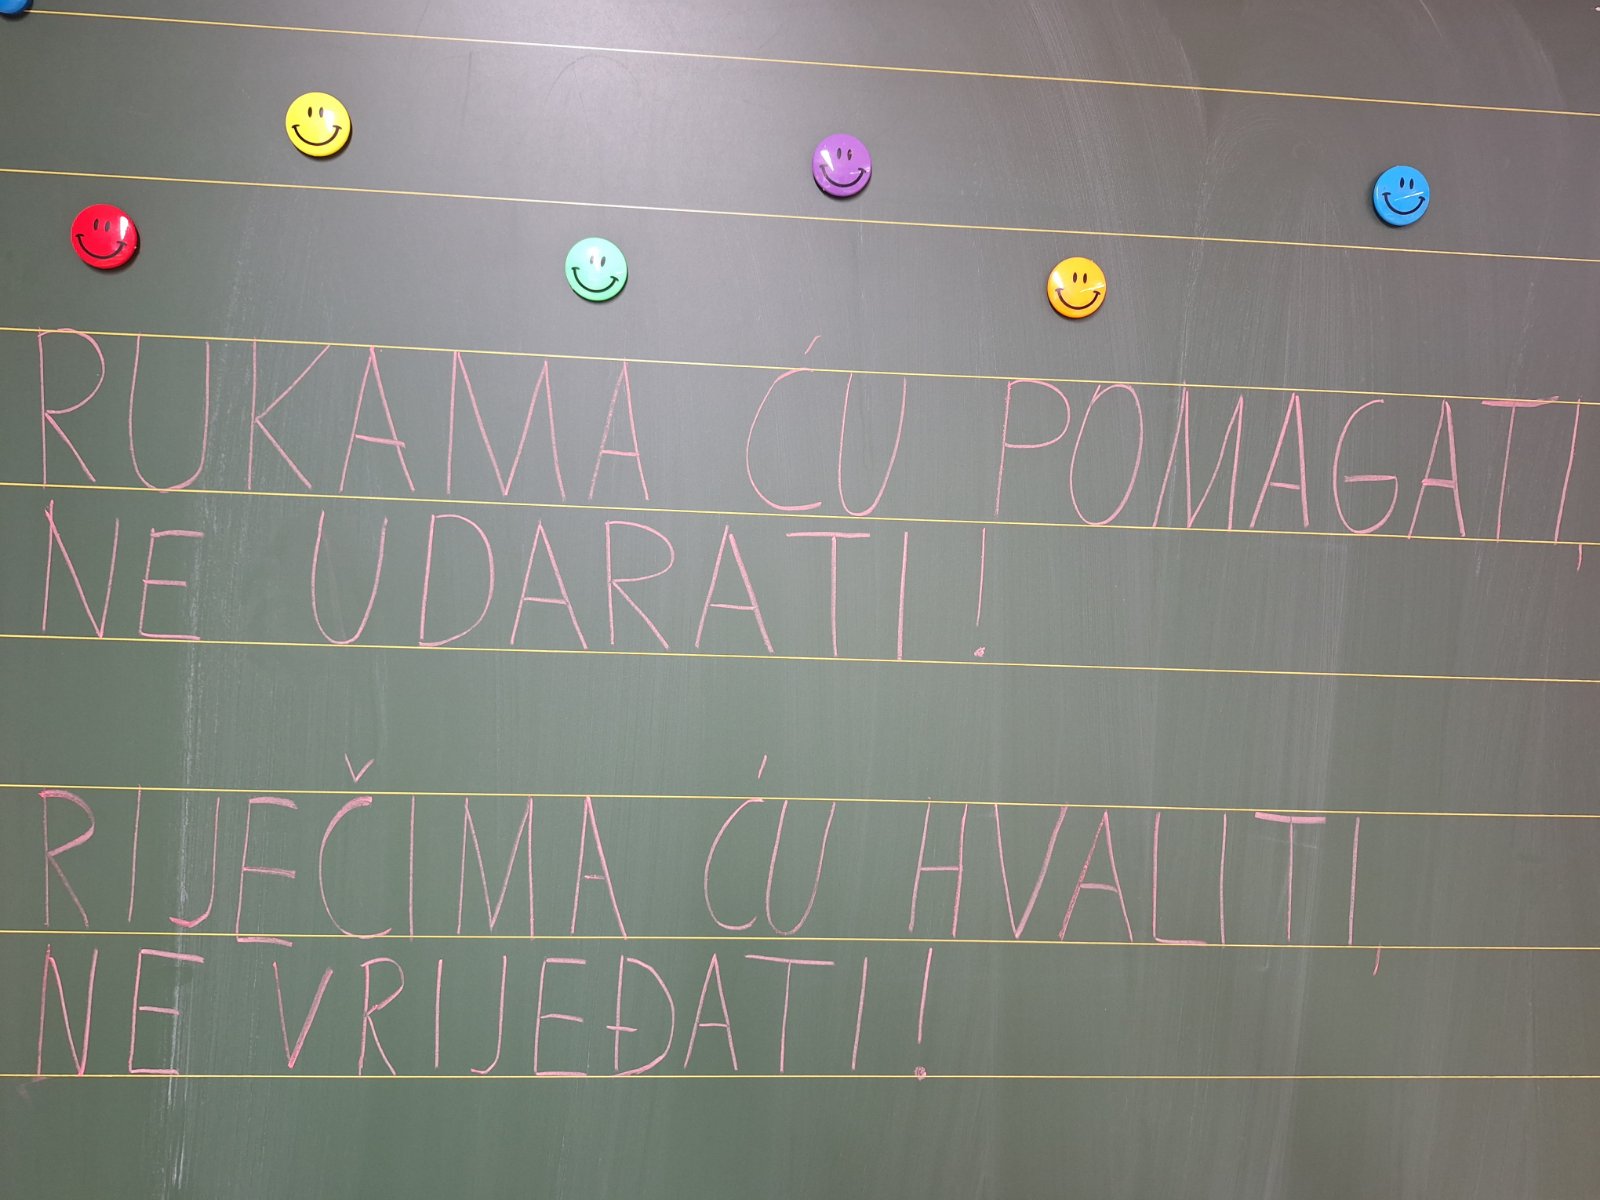 RUKAMA ĆU POMAGATI,
NE UDARATI!
RIJEČIMA ĆU HVALITI,
NE VRIJEĐATI!